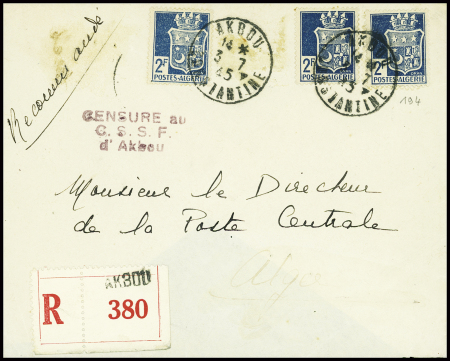 Recommandé
2F
POSTES-ALGÉRIE
AKBOU
14 *
3 7
45
CONSTANTINE
2F
POSTES-ALGÉRIE
2F
POSTES-ALGÉRIE
AKBOU
14 *
3 7
45
CONSTANTINE
194
CENSURE au
C. S. S. F.
d'Akbou
Monsieur le Directeur
de la Poste Centrale
Alger
AKBOU
R 380